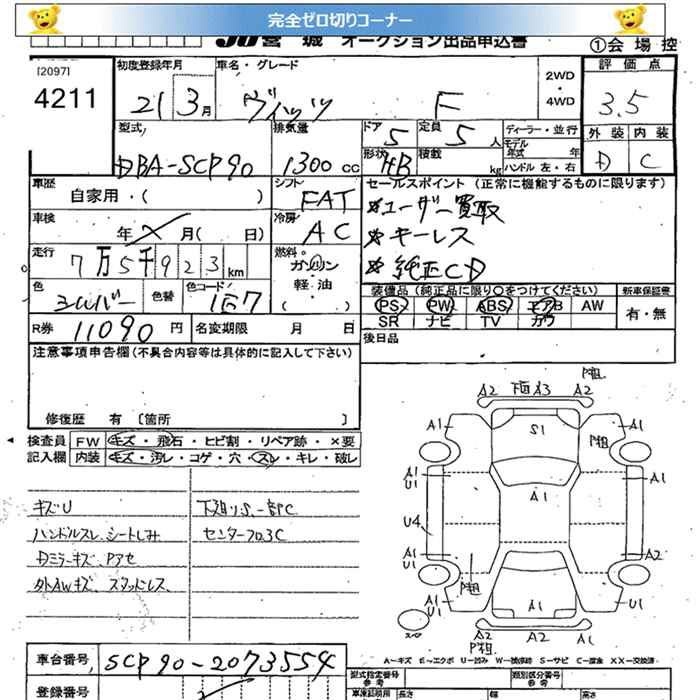 完全ゼロ切りコーナー
JU宮城 オークション出品申込書
①会場控
[2097]
4211
初度登録年月
21 3月
車名・グレード
ヴィッツ F
2WD
・
4WD
評価点
3.5
外装 内装
D C
型式
DBA-SCP90
排気量
1300 CC
ドア 5
定員 5人
ディーラー・並行
モデル年式 年
形状 HB
積載 kg
ハンドル 左・右
車歴
自家用・( )
シフト
FAT
セールスポイント (正常に機能するものに限ります)
*ユーザー買取
*キーレス
*純正CD
車検
年 月( 日)
冷房
AC
走行
7万5千923km
燃料
ガソリン
軽・油
( )
色
シルバー
色替
色コード
1E7
装備品 (純正品に限り○をつけてください)
新車保証書
PS PW ABS エアB AW
SR ナビ TV カワ
有・無
R券 11090円
名変期限 月 日
後日品
注意事項申告欄 (不具合内容等は具体的に記入して下さい)
修復歴 有 [箇所 ]
検査員記入欄
FW キズ・飛石・ヒビ割・リペア跡・×要
内装 キズ・汚レ・コゲ・穴・スレ・キレ・破レ
キズU
ハンドルスレ、シートしみ
Dミラーキズ、Pアセ
外AWキズ、スタッドレス
下廻りS、一部PC
センターフロ3C
P粗
A2 下回A3 A2
A1 S1 P粗 A1
A1
U1
A1
A1
U4
A1
U1
A2
P粗
A1
U1 A1 U1
A2 A2
P粗
スペ
A〜キズ E〜エクボ U〜凹み W〜補修跡 S〜サビ C〜腐食 XX〜交換済
車台番号 SCP90-2073554
登録番号
型式指定番号
参考
類別区分番号
参考
車庫証明用
参考
長さ 幅 高さ